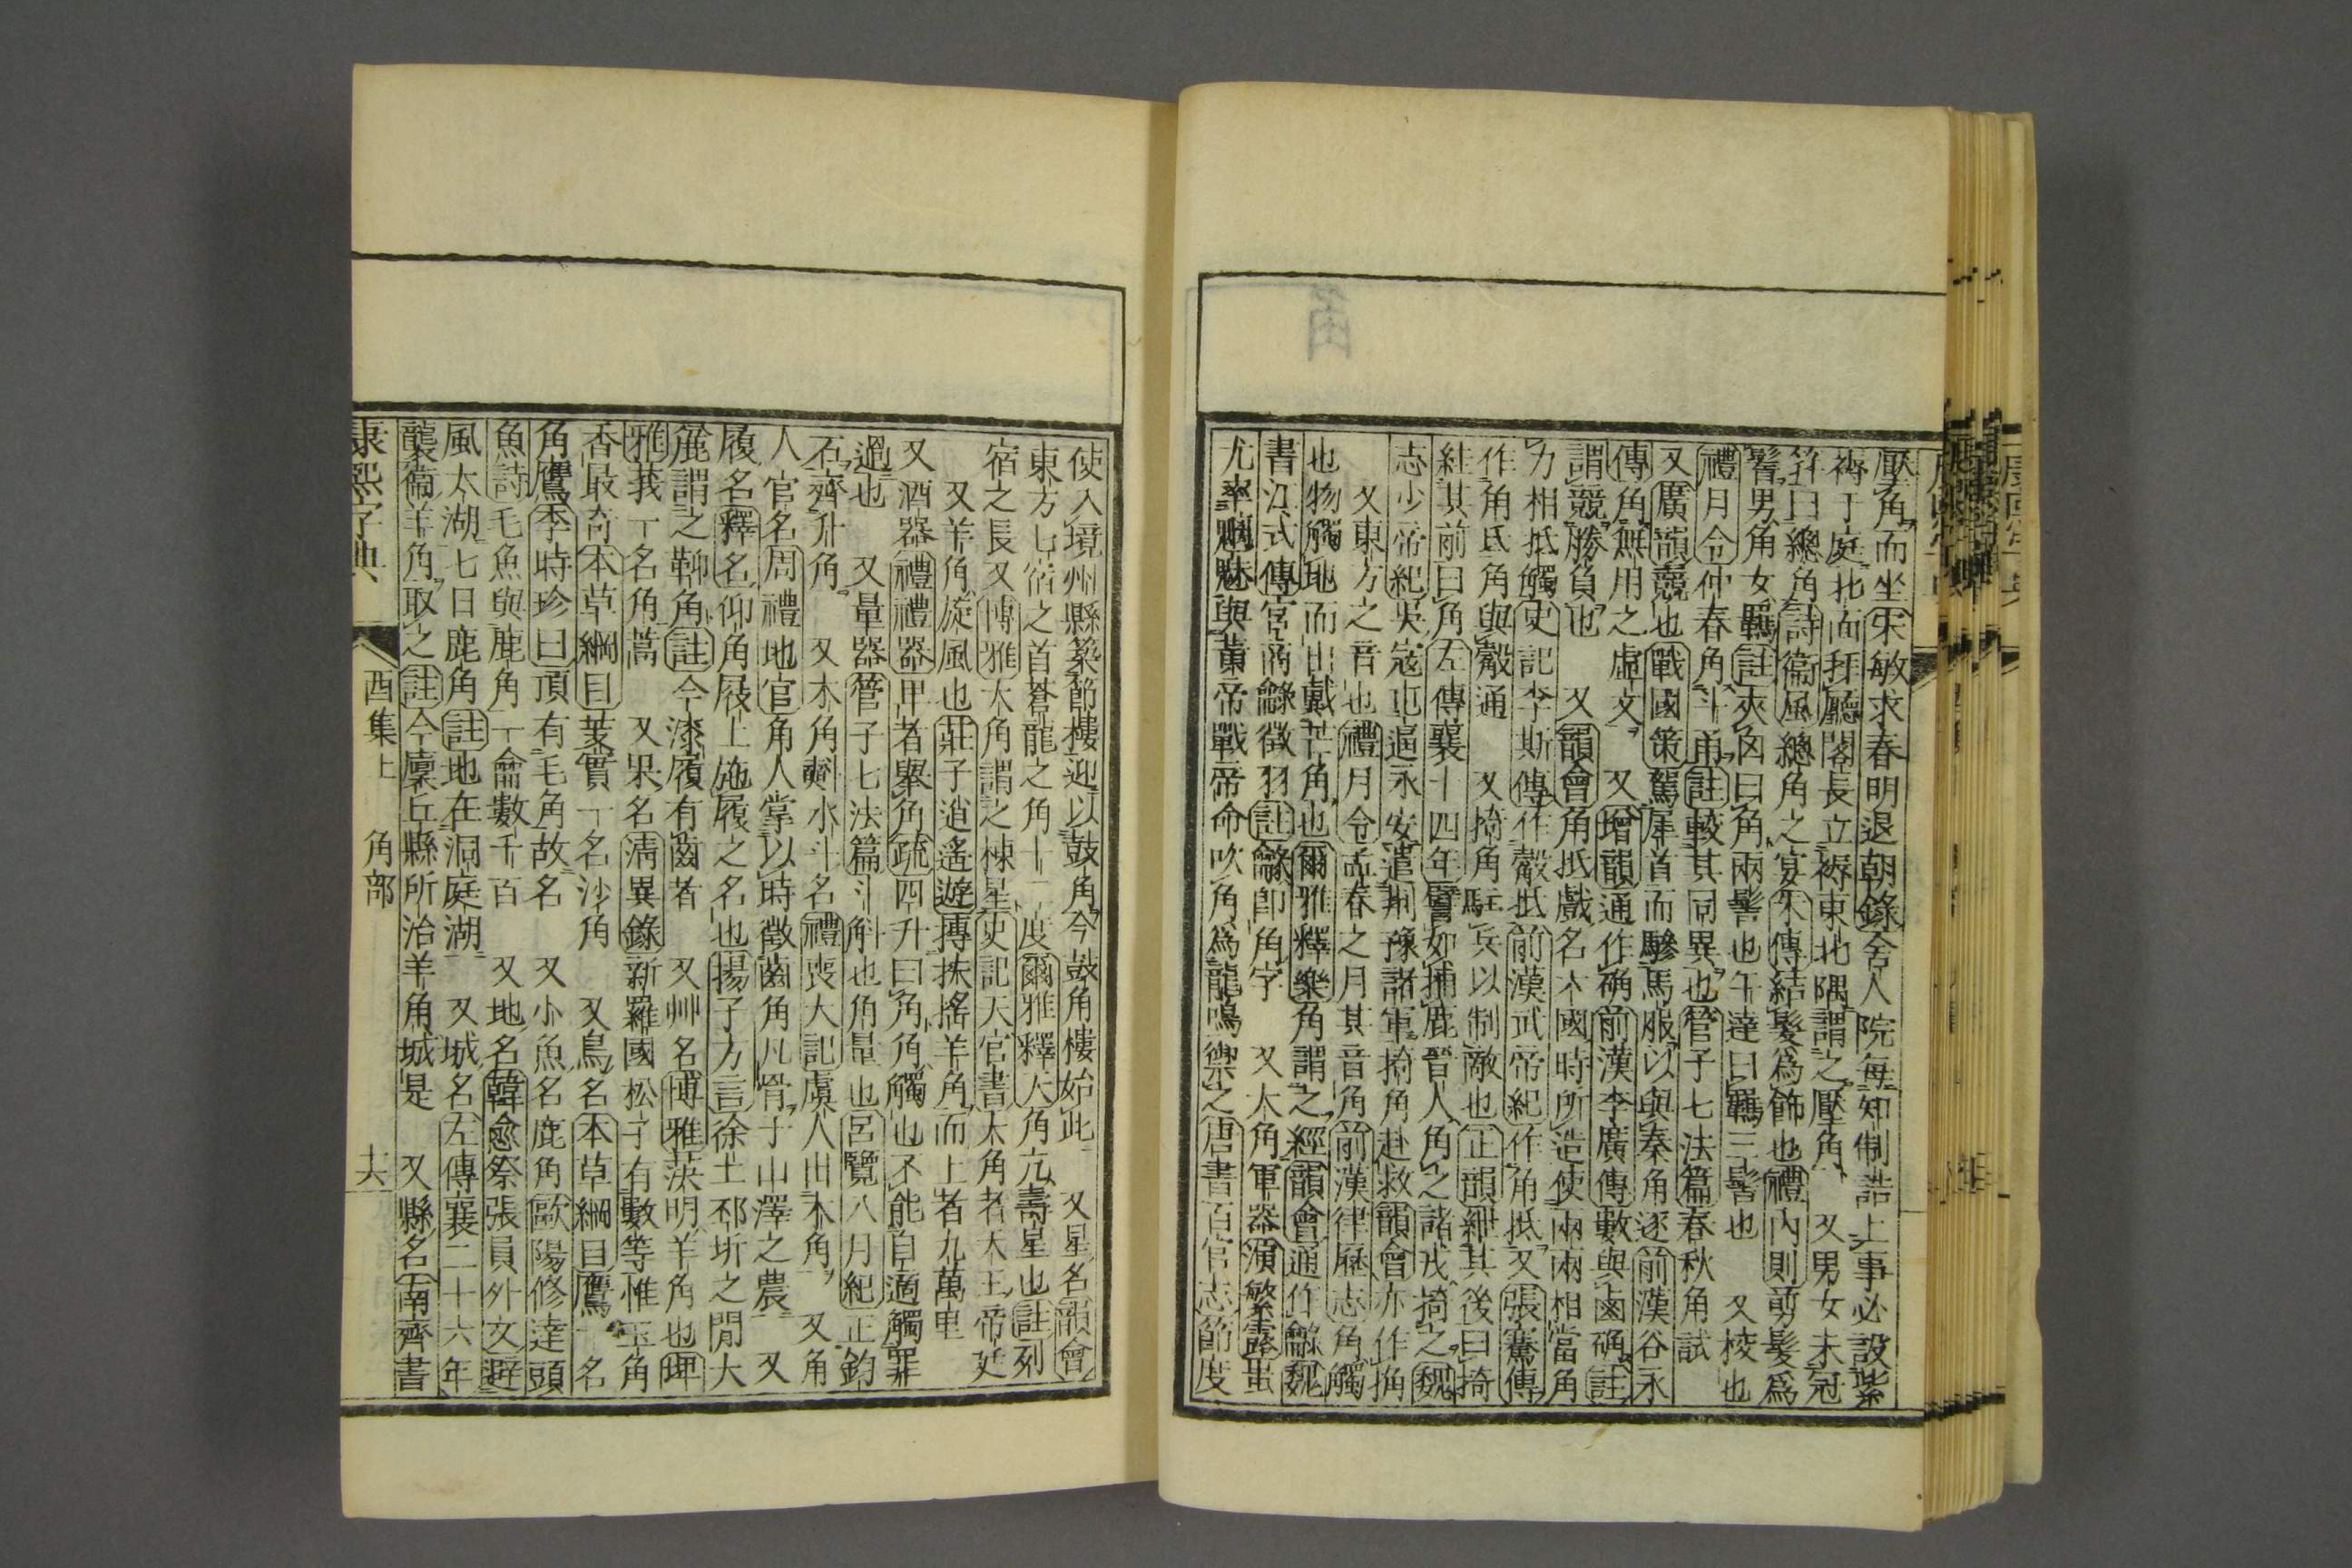 壓角而坐宋敏求春明退朝錄舍人院每知制誥上事必設紫
褥于庭北面拜廳閣長立褥東北隅謂之壓角　又男女未冠
筓曰總角詩衞風總角之宴朱傳結髮爲飾也禮內則剪髮爲
鬌男角女羈註夾囟曰角兩髻也午達曰羈三髻也　又棱也
禮月令仲春角斗甬註較其同異也管子七法篇春秋角試
又廣韻競也戰國策駕犀首而驂馬服以與秦角逐前漢谷永
傳角無用之虛文　又增韻通作确前漢李廣傳數與鹵确註
謂競勝負也　又韻會角抵戲名本國時所造使兩兩相當角
力相抵觸史記李斯傳作觳抵前漢武帝紀作角抵又張騫傳
作角氐角與觳通　又掎角駐兵以制敵也正韻絓其後曰掎
絓其前曰角左傳襄十四年譬如捕鹿晉人角之諸戎掎之魏
志少帝紀吳寇屯逼永安遣荆豫諸軍掎角赴救韻會亦作捔
又東方之音也禮月令孟春之月其音角前漢律歷志角觸
也物觸地而出戴芒角也爾雅釋樂角謂之經韻會通作龣魏
書江式傳宮商龣徵羽註龣卽角字　又大角軍器演繁露蚩
尤率魑魅與黃帝戰帝命吹角爲龍鳴禦之唐書百官志節度
使入境州縣築節樓迎以鼓角今鼓角樓始此　又星名韻會
東方七宿之首蒼龍之角十二度爾雅釋天角亢壽星也註列
宿之長又博雅大角謂之棟星史記天官書大角者天王帝廷
又羊角旋風也莊子逍遙遊摶扶搖羊角而上者九萬里
又酒器禮禮器甲者舉角疏四升曰角角觸也不能自適觸罪
過也　又量器管子七法篇斗斛也角量也呂覽八月紀正鈞
石齊升角　又木角㪺水斗名禮喪大記虞人出木角　又角
人官名周禮地官角人掌以時徵齒角凡骨于山澤之農　又
履名釋名仰角屐上施履之名也揚子方言徐土邳圻之閒大
麤謂之䩕角註今漆履有齒者　又艸名博雅䒷明羊角也埤
雅莪一名角蒿　又果名淸異錄新羅國松子有數等惟玉角
香最奇本草綱目蔆實一名沙角　又鳥名本草綱目鷹一名
角鷹李時珍曰頂有毛角故名　又小魚名鹿角歐陽修達頭
魚詩毛魚與鹿角一龠數千百　又地名韓愈祭張員外文避
風太湖七日鹿角註地在洞庭湖　又城名左傳襄二十六年
襲衞羊角取之註今廩丘縣所治羊角城是　又縣名南齊書
康熙字典　酉集上　角部　十六